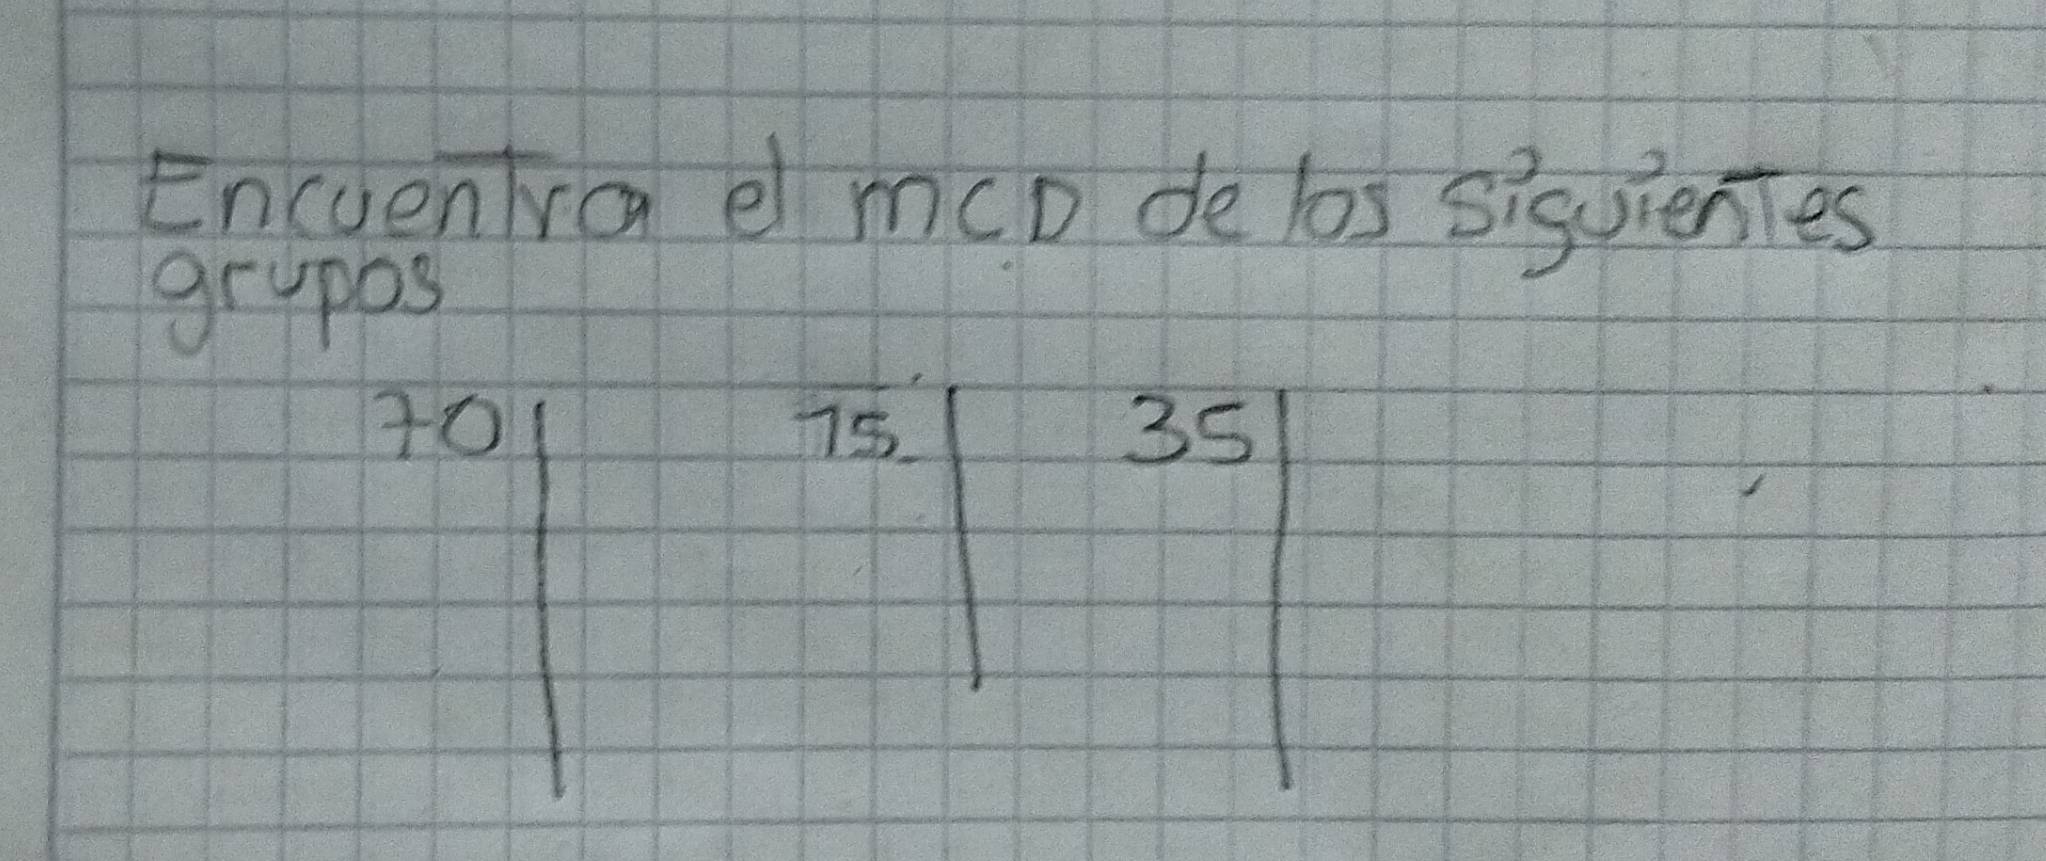 Encuentra el mcD de los siguientes
grupos
70 15 35